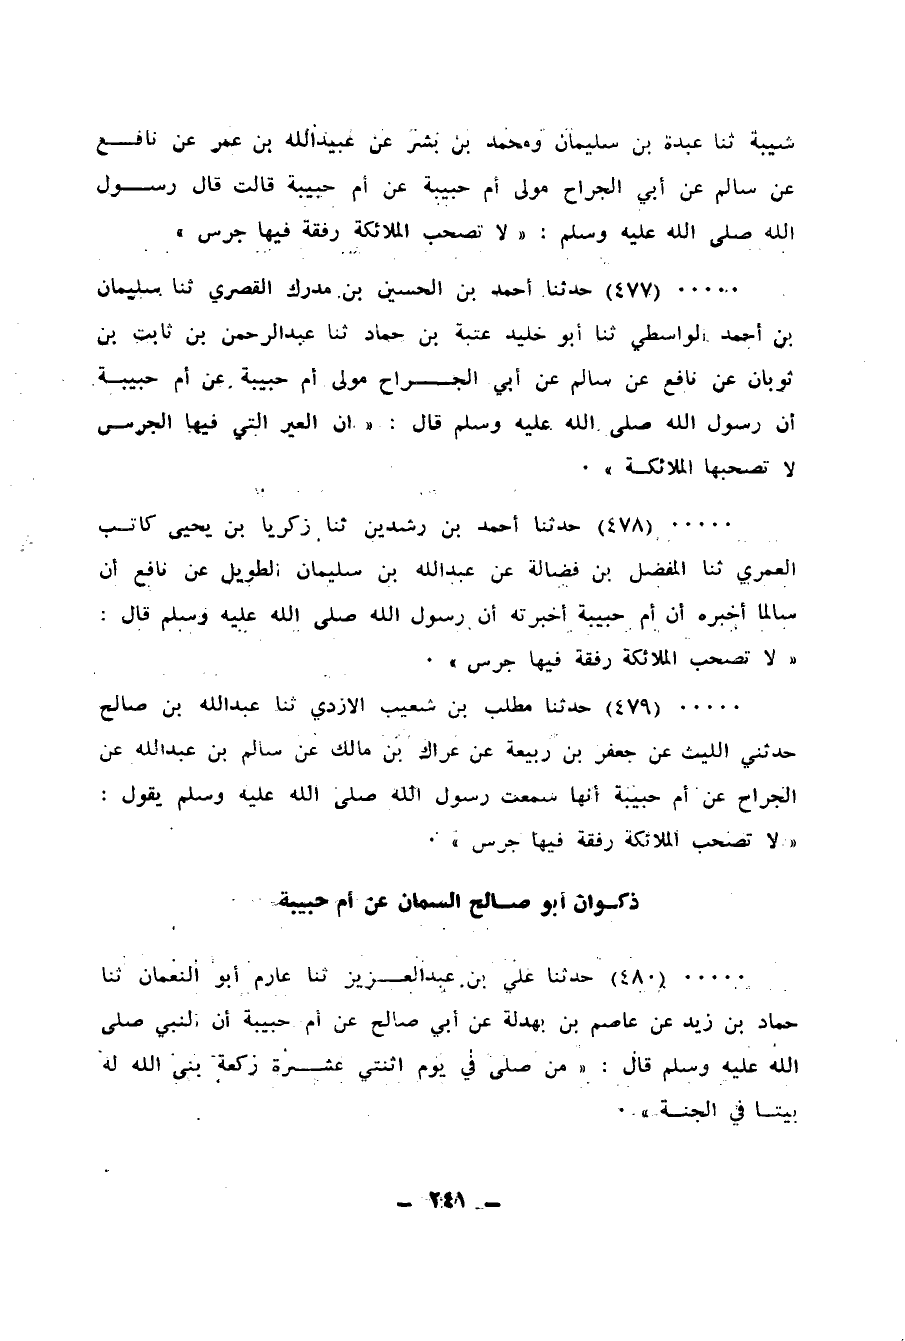 شيبة ثنا عبدة بن سليمان ومحمد بن بشر عن عبيدالله بن عمر عن نافـــع
عن سالم عن أبي الجراح مولى أم حبيبة عن أم حبيبة قالت قال رســـول
الله صلى الله عليه وسلم : « لا تصحب الملائكة رفقة فيها جرس »
٠٠٠٠٠ (٤٧٧) حدثنا أحمد بن الحسين بن مدرك القصري ثنا سليمان
بن أحمد الواسطي ثنا أبو خليد عتبة بن حماد ثنا عبدالرحمن بن ثابت بن
ثوبان عن نافع عن سالم عن أبي الجـــراح مولى أم حبيبة عن أم حبيبــة
أن رسول الله صلى الله عليه وسلم قال : « ان العير التي فيها الجرس
لا تصحبها الملائكــة » ٠
٠٠٠٠٠ (٤٧٨) حدثنا أحمد بن رشدين ثنا زكريا بن يحيى كاتــب
العمري ثنا المفضل بن فضالة عن عبدالله بن سليمان الطويل عن نافع أن
سالما أخبره أن أم حبيبة أخبرته أن رسول الله صلى الله عليه وسلم قال :
« لا تصحب الملائكة رفقة فيها جرس » ٠
٠٠٠٠٠ (٤٧٩) حدثنا مطلب بن شعيب الازدي ثنا عبدالله بن صالح
حدثني الليث عن جعفر بن ربيعة عن عراك بن مالك عن سالم بن عبدالله عن
الجراح عن أم حبيبة أنها سمعت رسول الله صلى الله عليه وسلم يقول :
« لا تصحب الملائكة رفقة فيها جرس » ٠
ذكــوان أبو صــالح السمان عن أم حبيبة
٠٠٠٠٠ (٤٨٠) حدثنا علي بن عبدالعـــزيز ثنا عارم أبو النعمان ثنا
حماد بن زيد عن عاصم بن بهدلة عن أبي صالح عن أم حبيبة أن النبي صلى
الله عليه وسلم قال : « من صلى في يوم اثنتي عشـــرة ركعة بنى الله له
بيتــا في الجنــة » ٠
– ٢٤١ –